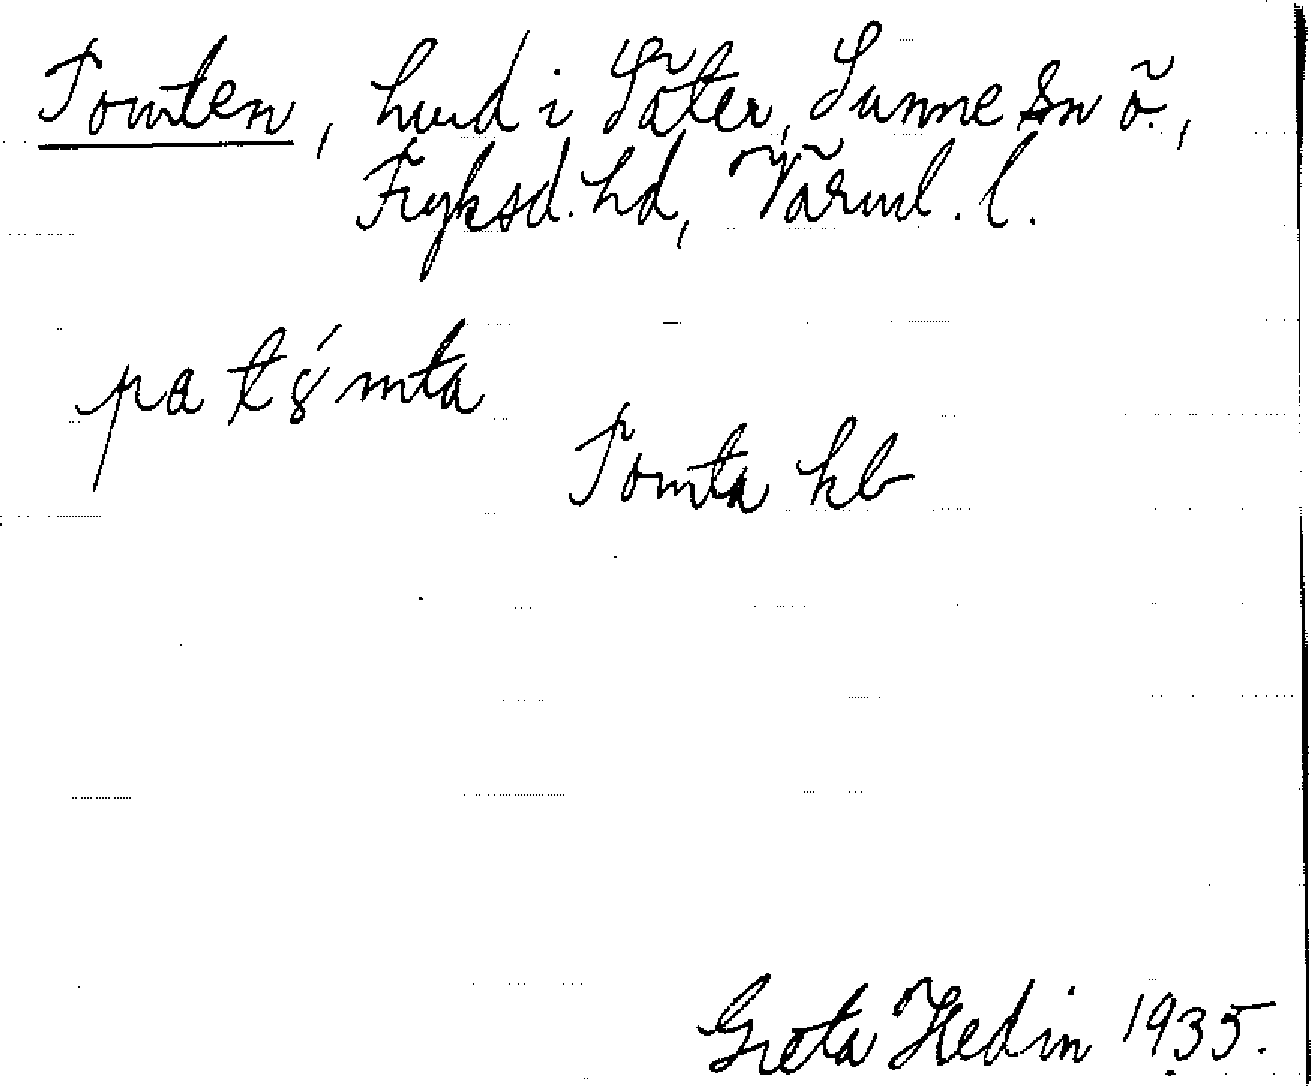 Tomten, hmd i Säter, Sunne sn ö.,
Fryksd. hd, Värml. l.
pa tȣ́mta
Tomta kb
Greta Hedin 1935.